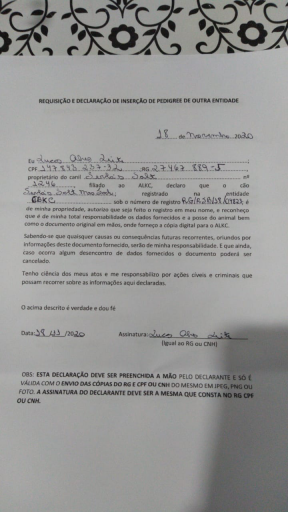 REQUISIÇÃO E DECLARAÇÃO DE INSERÇÃO DE PEDIGREE DE OUTRA ENTIDADE
18 de Novembro 2020
Eu Lucas Alves Leite
CPF RG 27467 889-5
proprietário do canil nº
1246 filiado ao ALKC, declaro que o cão
registrado na entidade
sob o número de registro
de minha propriedade, autorizo que seja feito o registro em meu nome, e reconheço
que é de minha total responsabilidade os dados fornecidos e a posse do animal bem
como o documento original em mãos, onde forneço a cópia digital para o ALKC.
Sabendo-se que quaisquer causas ou consequências futuras recorrentes, oriundos por
informações deste documento fornecido, serão de minha responsabilidade. E que ainda,
caso ocorra algum desencontro de dados fornecidos o documento poderá ser
cancelado.
Tenho ciência dos meus atos e me responsabilizo por ações cíveis e criminais que
possam recorrer sobre as informações aqui declaradas.
O acima descrito é verdade e dou fé
Data: 18/11/2020 Assinatura: Lucas Alves Leite
(Igual ao RG ou CNH)
OBS: ESTA DECLARAÇÃO DEVE SER PREENCHIDA A MÃO PELO DECLARANTE E SÓ É
VÁLIDA COM O ENVIO DAS CÓPIAS DO RG E CPF OU CNH DO MESMO EM JPEG, PNG OU
FOTO. A ASSINATURA DO DECLARANTE DEVE SER A MESMA QUE CONSTA NO RG CPF
OU CNH.